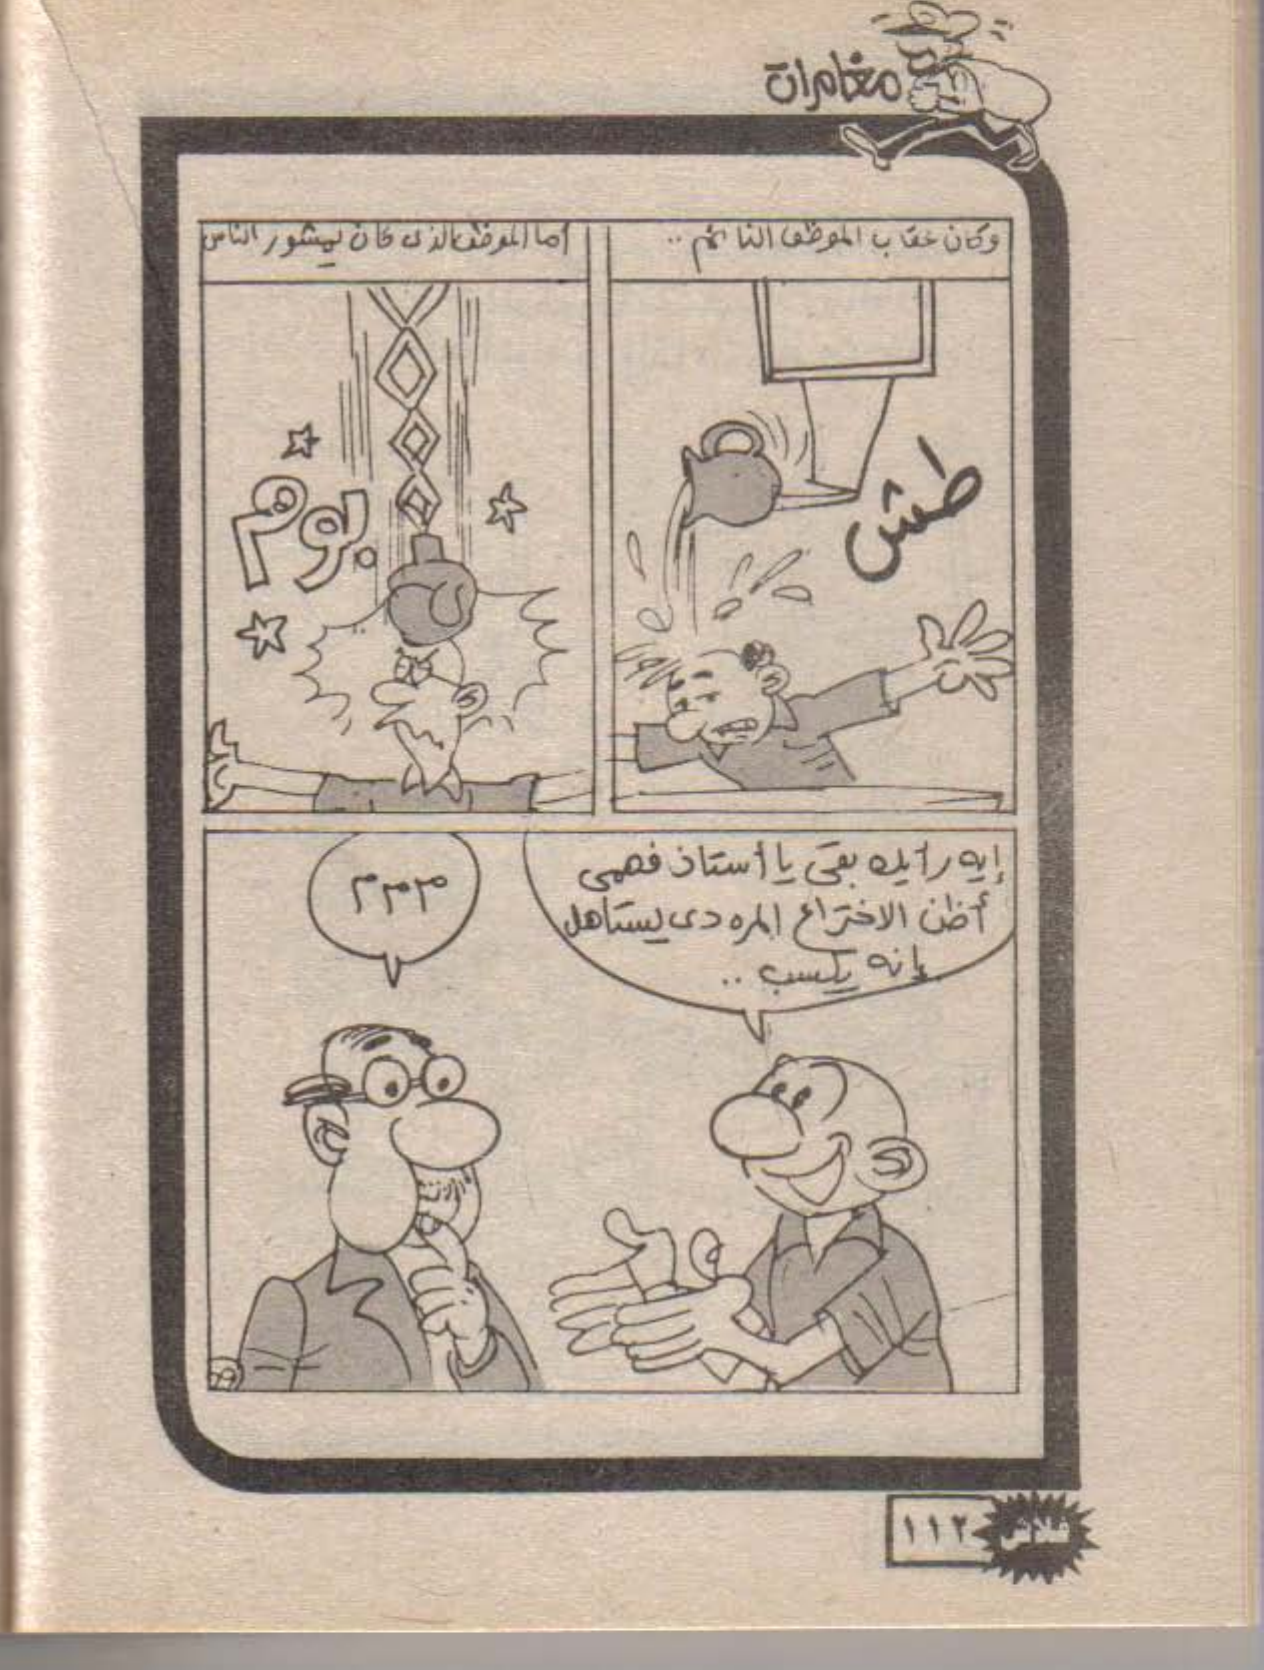 مغامرات
وكان عقاب الموظف النائم ..
طش
أما الموظف الذى كان بيشور الناس
بوم
إيه رأيك بقى يا أستاذ فهمى
أظن الاختراع المره دى يستاهل
إنه يكسب ..
ممم
فلاش
١١٢